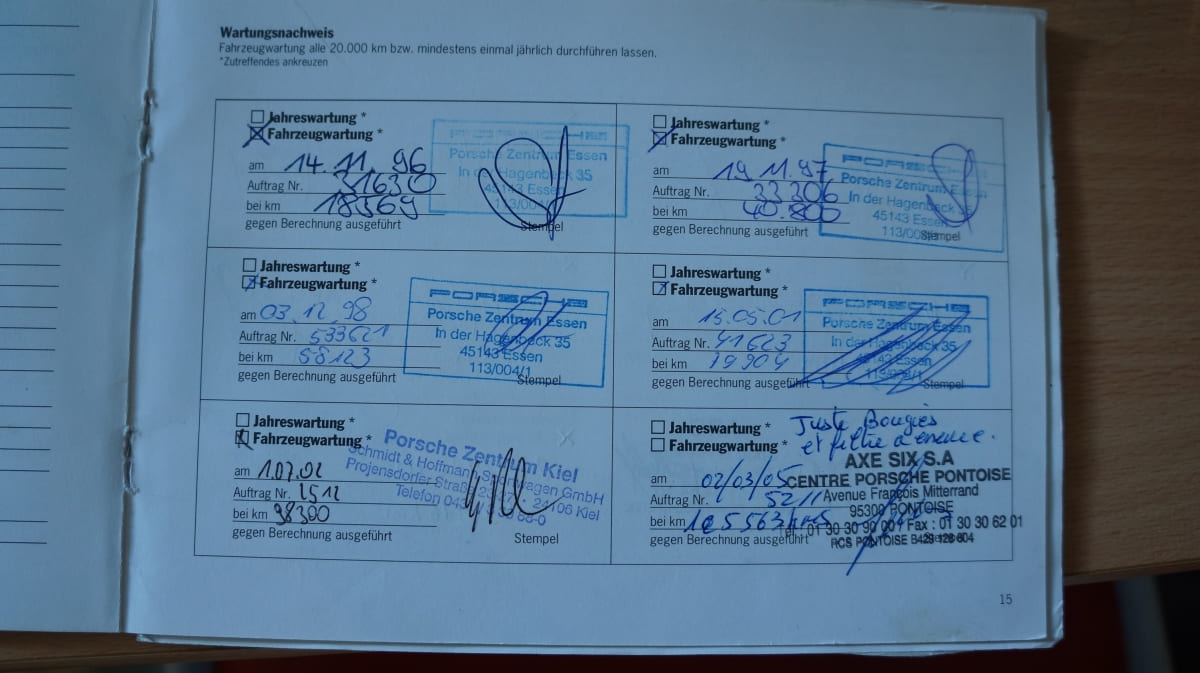 Wartungsnachweis
Fahrzeugwartung alle 20.000 km bzw. mindestens einmal jährlich durchführen lassen.
*Zutreffendes ankreuzen
Jahreswartung *
Fahrzeugwartung *
am 14.11.96
Auftrag Nr. 31630
bei km 18569
gegen Berechnung ausgeführt
PORSCHE
Porsche Zentrum Essen
In der Hagenbeck 35
45143 Essen
113/004/
Stempel
Jahreswartung *
Fahrzeugwartung *
am 19.11.97
Auftrag Nr. 33306
bei km 40.800
gegen Berechnung ausgeführt
PORSCHE
Porsche Zentrum Essen
In der Hagenbeck 35
45143 Essen
113/00
Stempel
Jahreswartung *
Fahrzeugwartung *
am 03.12.98
Auftrag Nr. 533621
bei km 58123
gegen Berechnung ausgeführt
PORSCHE
Porsche Zentrum Essen
In der Hagenbeck 35
45143 Essen
113/004/1
Stempel
Jahreswartung *
Fahrzeugwartung *
am 15.05.01
Auftrag Nr. 41623
bei km 79904
gegen Berechnung ausgeführt
PORSCHE
Porsche Zentrum Essen
In der Hagenbeck 35
45143 Essen
113/004/1
Stempel
Jahreswartung *
Fahrzeugwartung *
am 1.07.02
Auftrag Nr. 2512
bei km 98300
gegen Berechnung ausgeführt
Porsche Zentrum Kiel
Schmidt & Hoffmann Sportwagen GmbH
Projensdorfer Straße 24106 Kiel
Telefon
Stempel
Juste Bougies
et filtre à essence.
Jahreswartung *
Fahrzeugwartung *
am 02/03/05
Auftrag Nr. 5211
bei km 105563 kms
gegen Berechnung ausgeführt
AXE SIX S.A
CENTRE PORSCHE PONTOISE
Avenue François Mitterrand
95300 PONTOISE
Tél : 01 30 30 90 00 / Fax : 01 30 30 62 01
RCS PONTOISE B 428 128 604
15